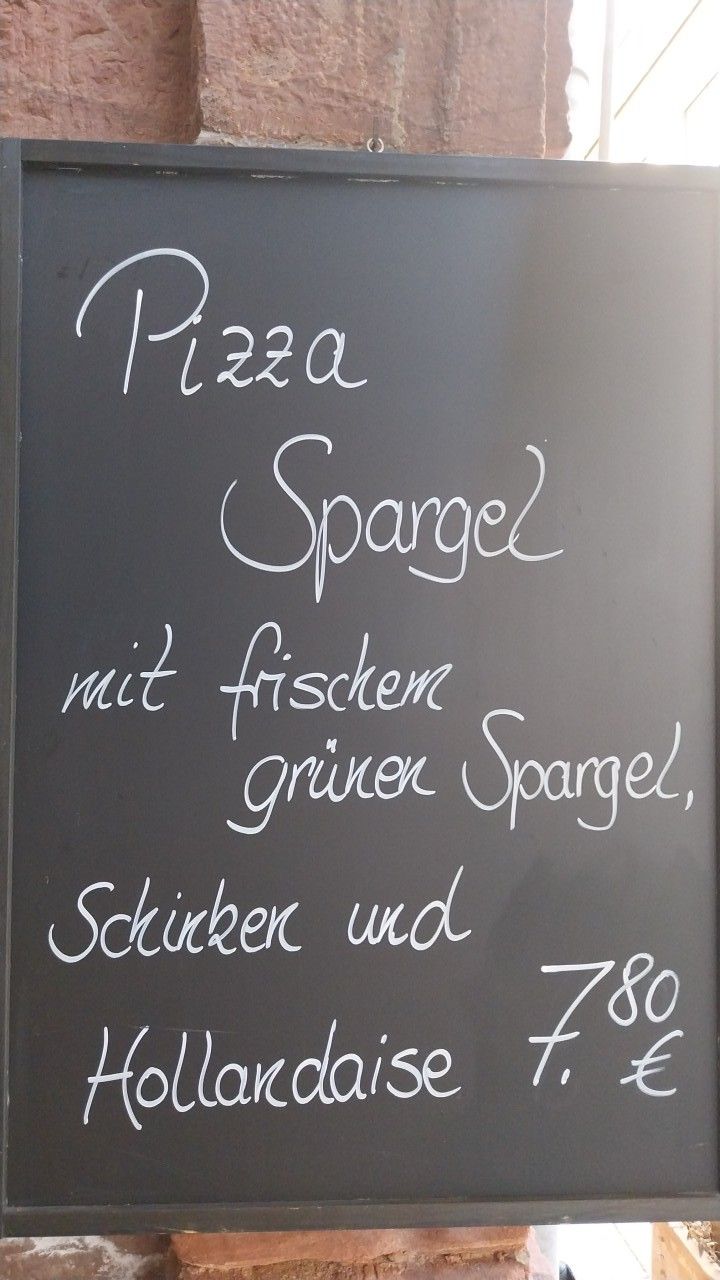 Pizza
Spargel
mit frischem
grünen Spargel,
Schinken und
Hollandaise 7.80 €